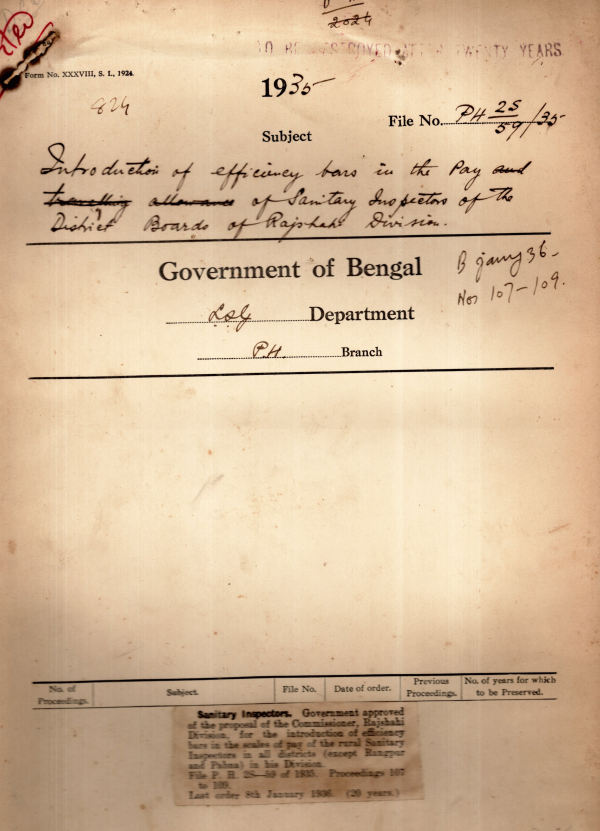 2024
TO BE DESTROYED AFTER TWENTY YEARS
Form No. XXXVIII, S. I., 1924.
824
1935
File No. P.H 2S/59/35
Subject
Introduction of efficiency bars in the Pay and
travelling allowance of Sanitary Inspectors of the
District Boards of Rajshahi Division.
Government of Bengal
B jany 36.
Nos 107-109.
L.S.G Department
P.H. Branch
No. of Proceedings.
Subject.
File No.
Date of order.
Previous Proceedings.
No. of years for which to be Preserved.
Sanitary Inspectors. Government approved
of the proposal of the Commissioner, Rajshahi
Division, for the introduction of efficiency
bars in the scales of pay of the rural Sanitary
Inspectors in all districts (except Rangpur
and Pabna) in his Division.
File P. H. 2S—59 of 1935. Proceedings 107
to 109.
Last order 8th January 1936. (20 years.)